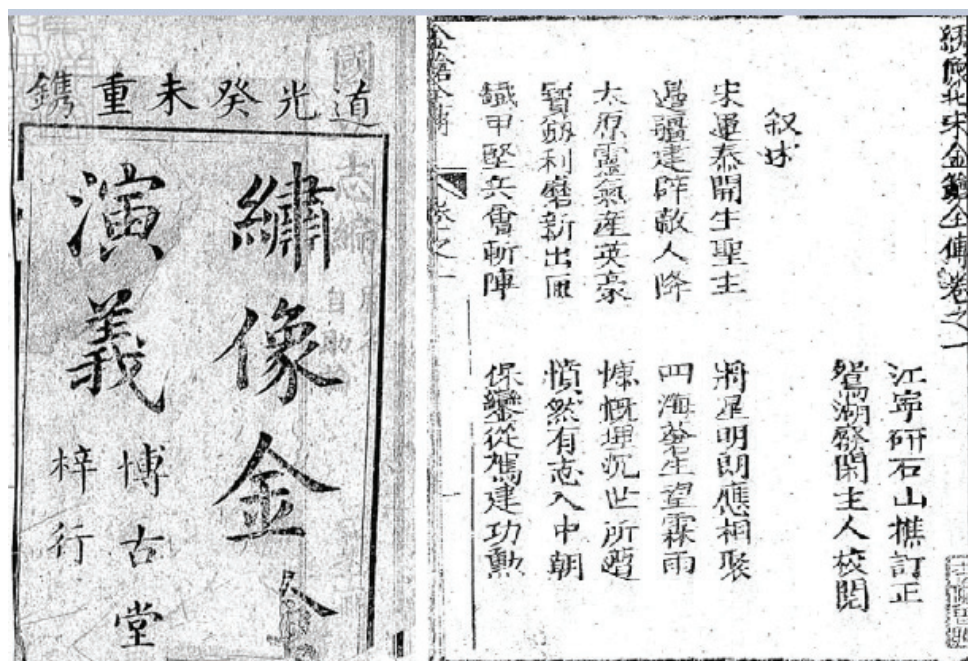 道光癸未重鐫
繡像金
演義
博古堂
梓行
綉像北宋金鎗全傳卷之一
江寧研石山樵訂正
鴛湖廢閑主人校閱
叙述
宋運泰開生聖主　將星明朗應相聚
邊疆建辟敵人降　四海蒼生望霖雨
太原靈氣產英豪　慷慨埋沉世所遭
寶劔利磨新出匣　憤然有志入中朝
鐵甲堅兵會斬陣　保鑾從駕建功勲
金鎗全傳　卷之一